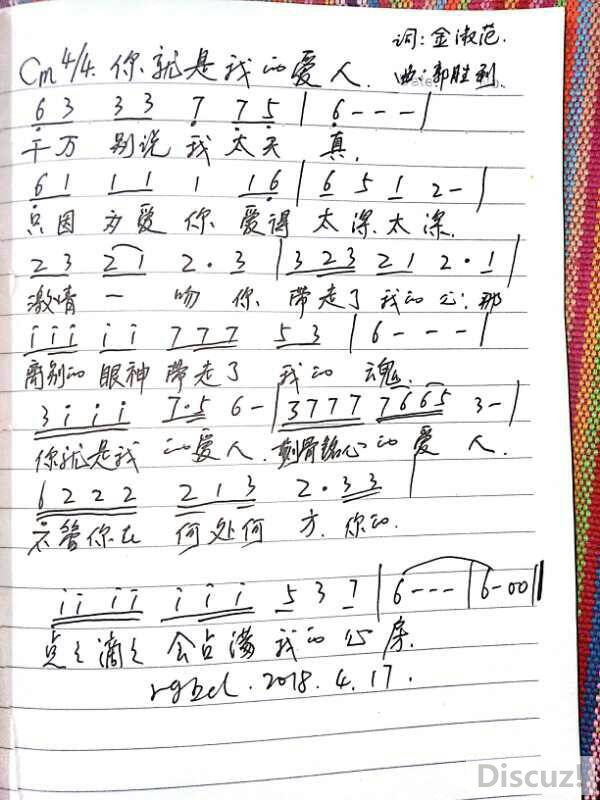 词:金淑范.
Cm 4/4. 你就是我的爱人. 曲:郭胜利.
6 3 3 3 7 7 5 | 6 - - - |
千万 别说 我 太天 真.
6 1 1 1 1 1 6 | 6 5 1 2 - |
只因 为爱 你 爱得 太 深. 太 深.
2 3 2 1 2 · 3 | 3 2 3 2 1 2 · 1 |
激情 一 吻 你 带走了 我的 心. 那
i i i i i 7 7 7 5 3 | 6 - - - |
离别的 眼神 带走了 我的 魂.
3 i i i 7 · 5 6 - | 3 7 7 7 7 6 6 5 3 - |
你就是我 的爱人. 刻骨铭心 的爱 人.
6 2 2 2 2 1 3 2 · 3 3 |
不管你在 何处何 方. 你的.
i i i i i i i 5 3 7 | 6 - - - | 6 - 0 0 ||
点之滴之 会占满 我的心 房.
2018. 4. 17.
Discuz!